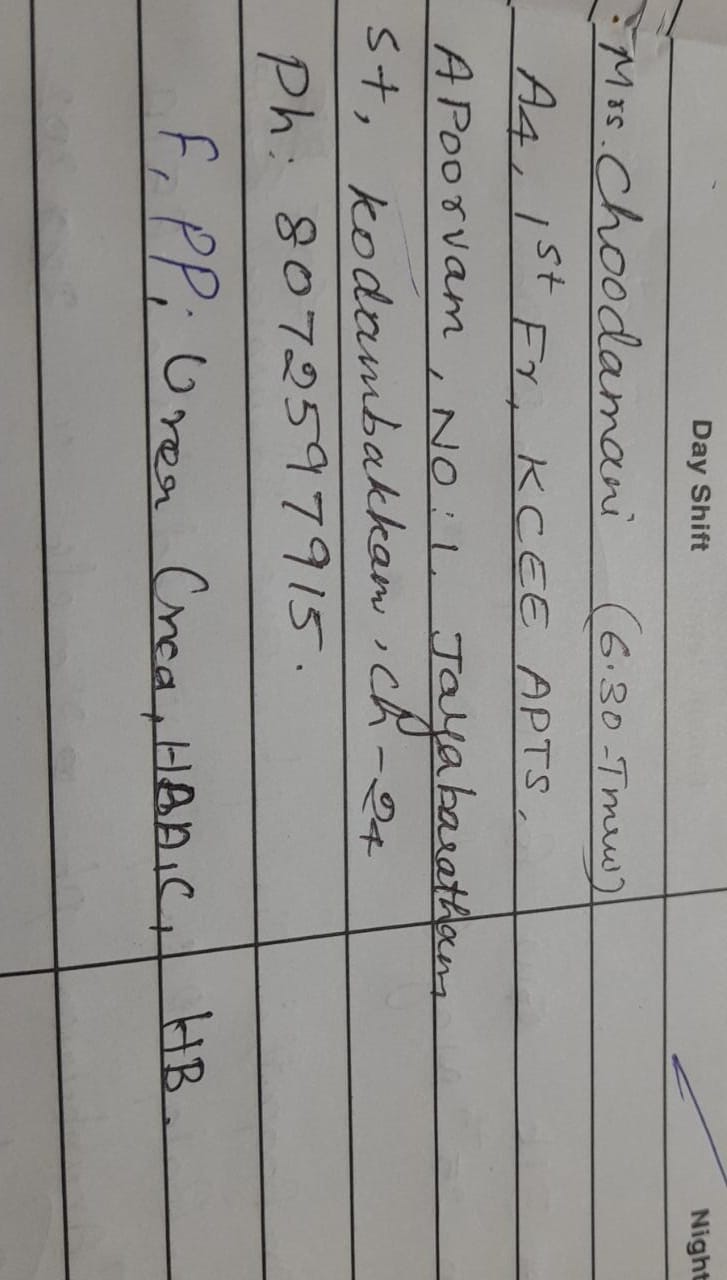 Day Shift Night
Mrs. Choodamani (6.30-Tmrw)
A4, 1st Fr, KCEE APTS,
APoorvam, NO:1, Jayabaratham
st, kodambakkam, ch-24
Ph: 8072597915.
F, PP, Urea Crea, HBA1C, HB.